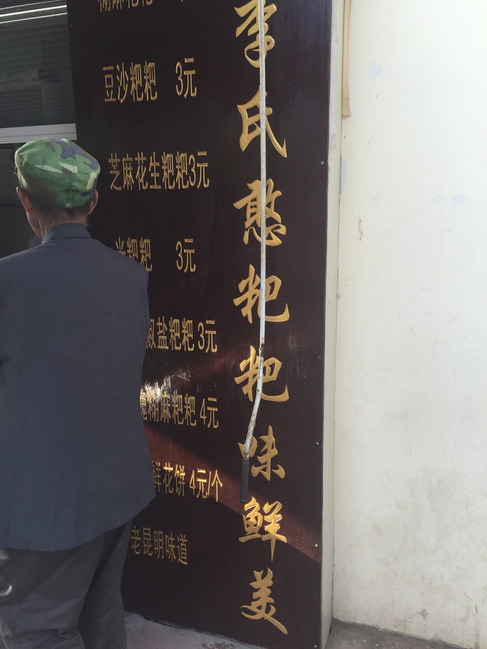 豆沙粑粑 3元
芝麻花生粑粑3元
粑粑 3元
盐粑粑 3元
糊麻粑粑 4元
鲜花饼 4元/个
老昆明味道
李氏憨粑粑味鲜美